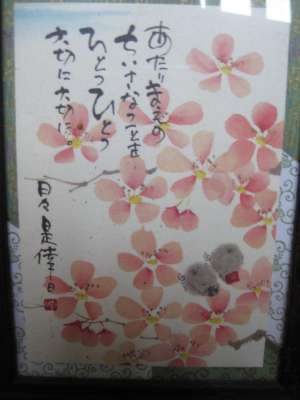 あたりまえの
ちいさなことを
ひとつひとつ
大切に大切に。
日々是倖日